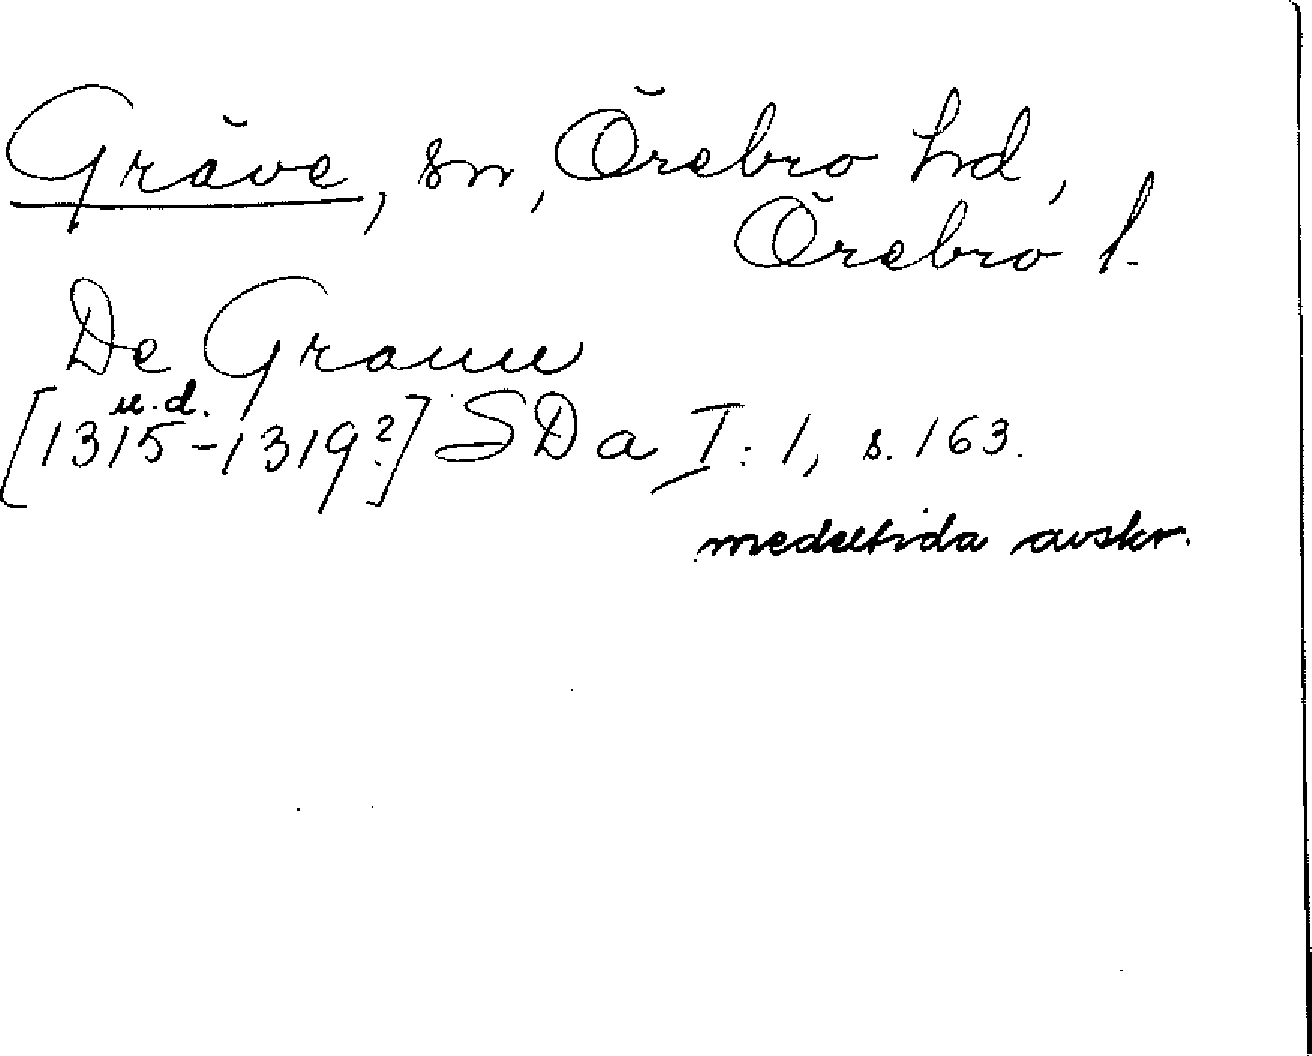 Gräve, sn, Örebro hd,
Örebro l.
De Grauu
u.d.
[1315-1319?] SDa I:1, s. 163.
medeltida avskr.